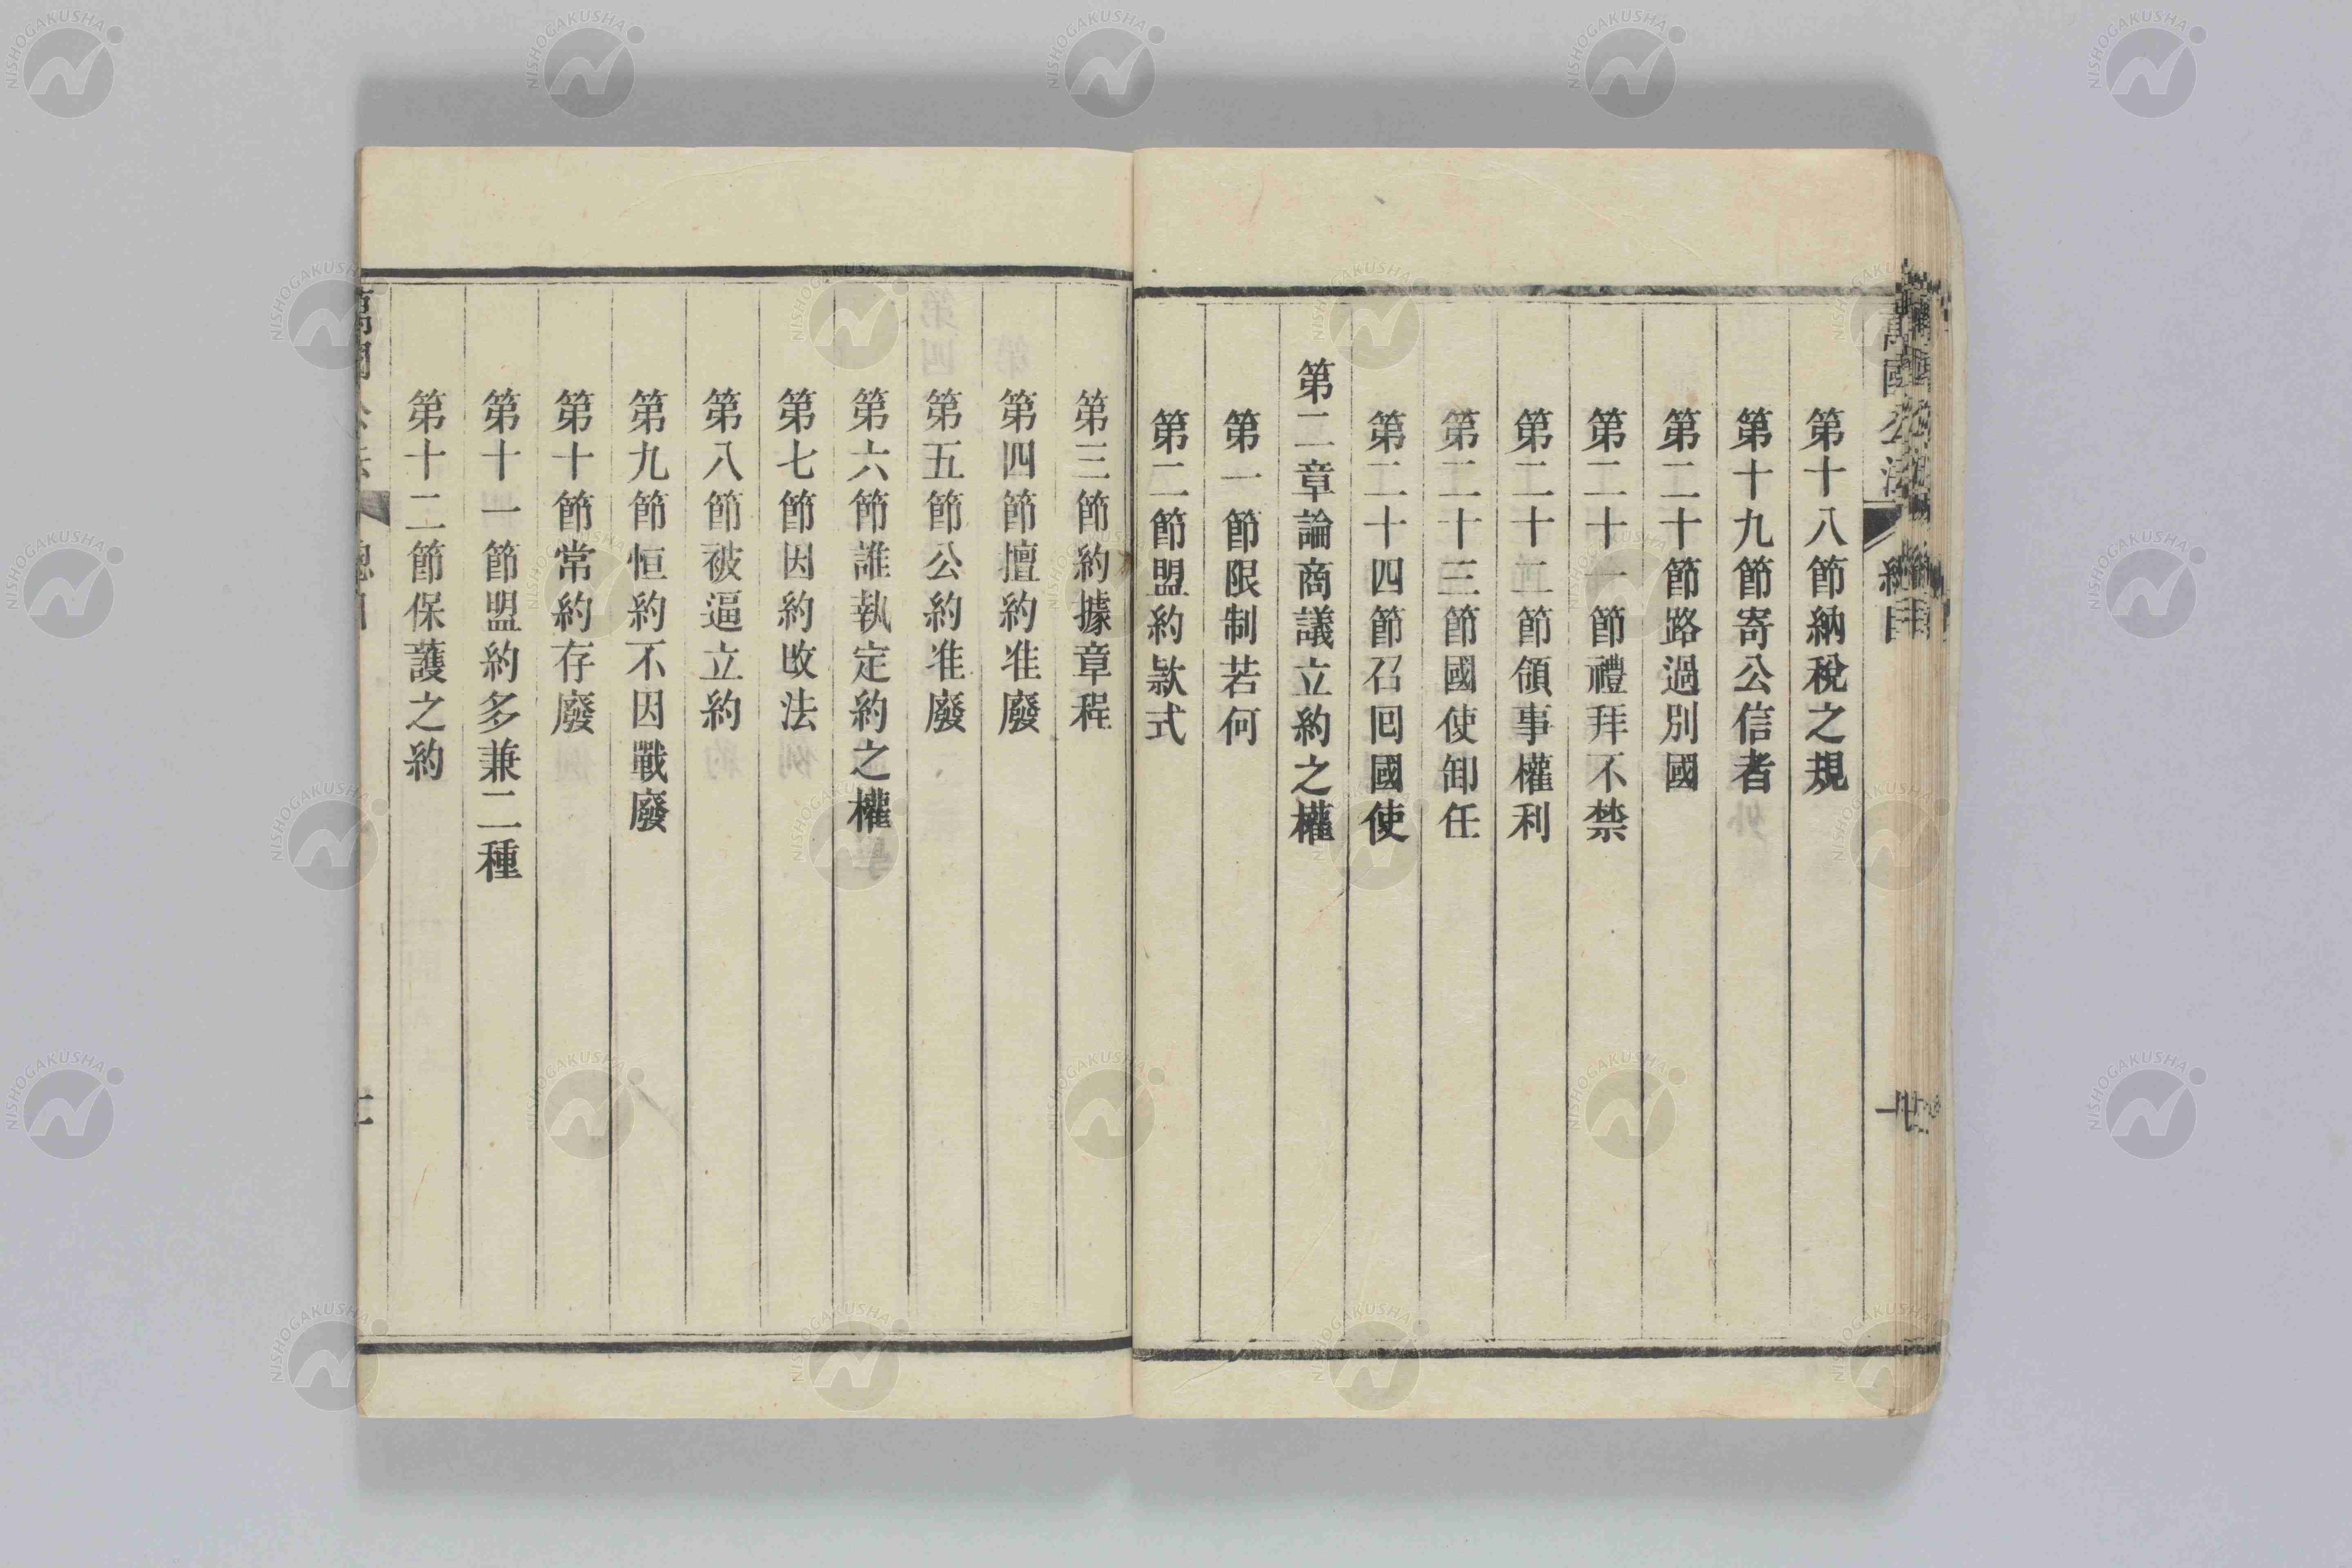 萬國公法 總目
第十八節納稅之規
第十九節寄公信者
第二十節路過別國
第二十一節禮拜不禁
第二十二節領事權利
第二十三節國使卸任
第二十四節召囘國使
第二章論商議立約之權
第一節限制若何
第二節盟約款式
第三節約據章程
第四節擅約准廢
第五節公約准廢
第六節誰執定約之權
第七節因約改法
第八節被逼立約
第九節恒約不因戰廢
第十節常約存廢
第十一節盟約多兼二種
第十二節保護之約
NISHOGAKUSHA